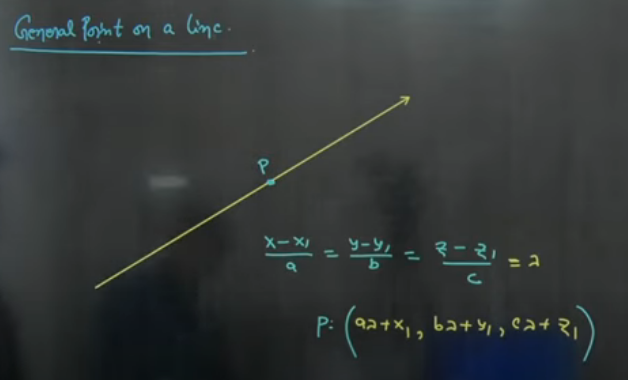 General Point on a line.
P
x-x₁/a = y-y₁/b = z-z₁/c = λ
P: (aλ+x₁, bλ+y₁, cλ+z₁)